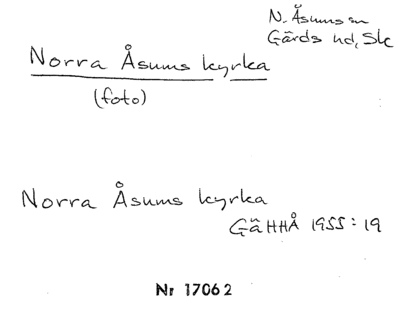 N. Åsums sn
Gärds hd, Sk
Norra Åsums kyrka
(foto)
Norra Åsums kyrka
GäHHÅ 1955:19
Nr 17062